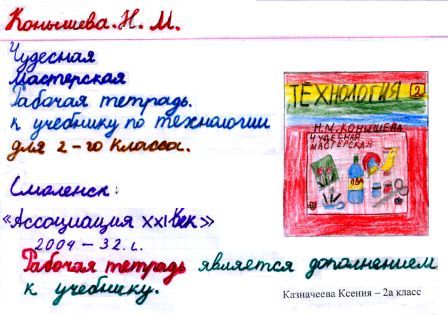 Конышева. Н. М.
Чудесная
мастерская
Рабочая тетрадь.
к учебнику по технологии
для 2-го класса.
Смоленск:
«Ассоциация XXI век»
2004 – 32. с.
Рабочая тетрадь является дополнением
к учебнику.
ТЕХНОЛОГИЯ 2
Н.М. КОНЫШЕВА
ЧУДЕСНАЯ
МАСТЕРСКАЯ
ПВА
Казначеева Ксения – 2а класс